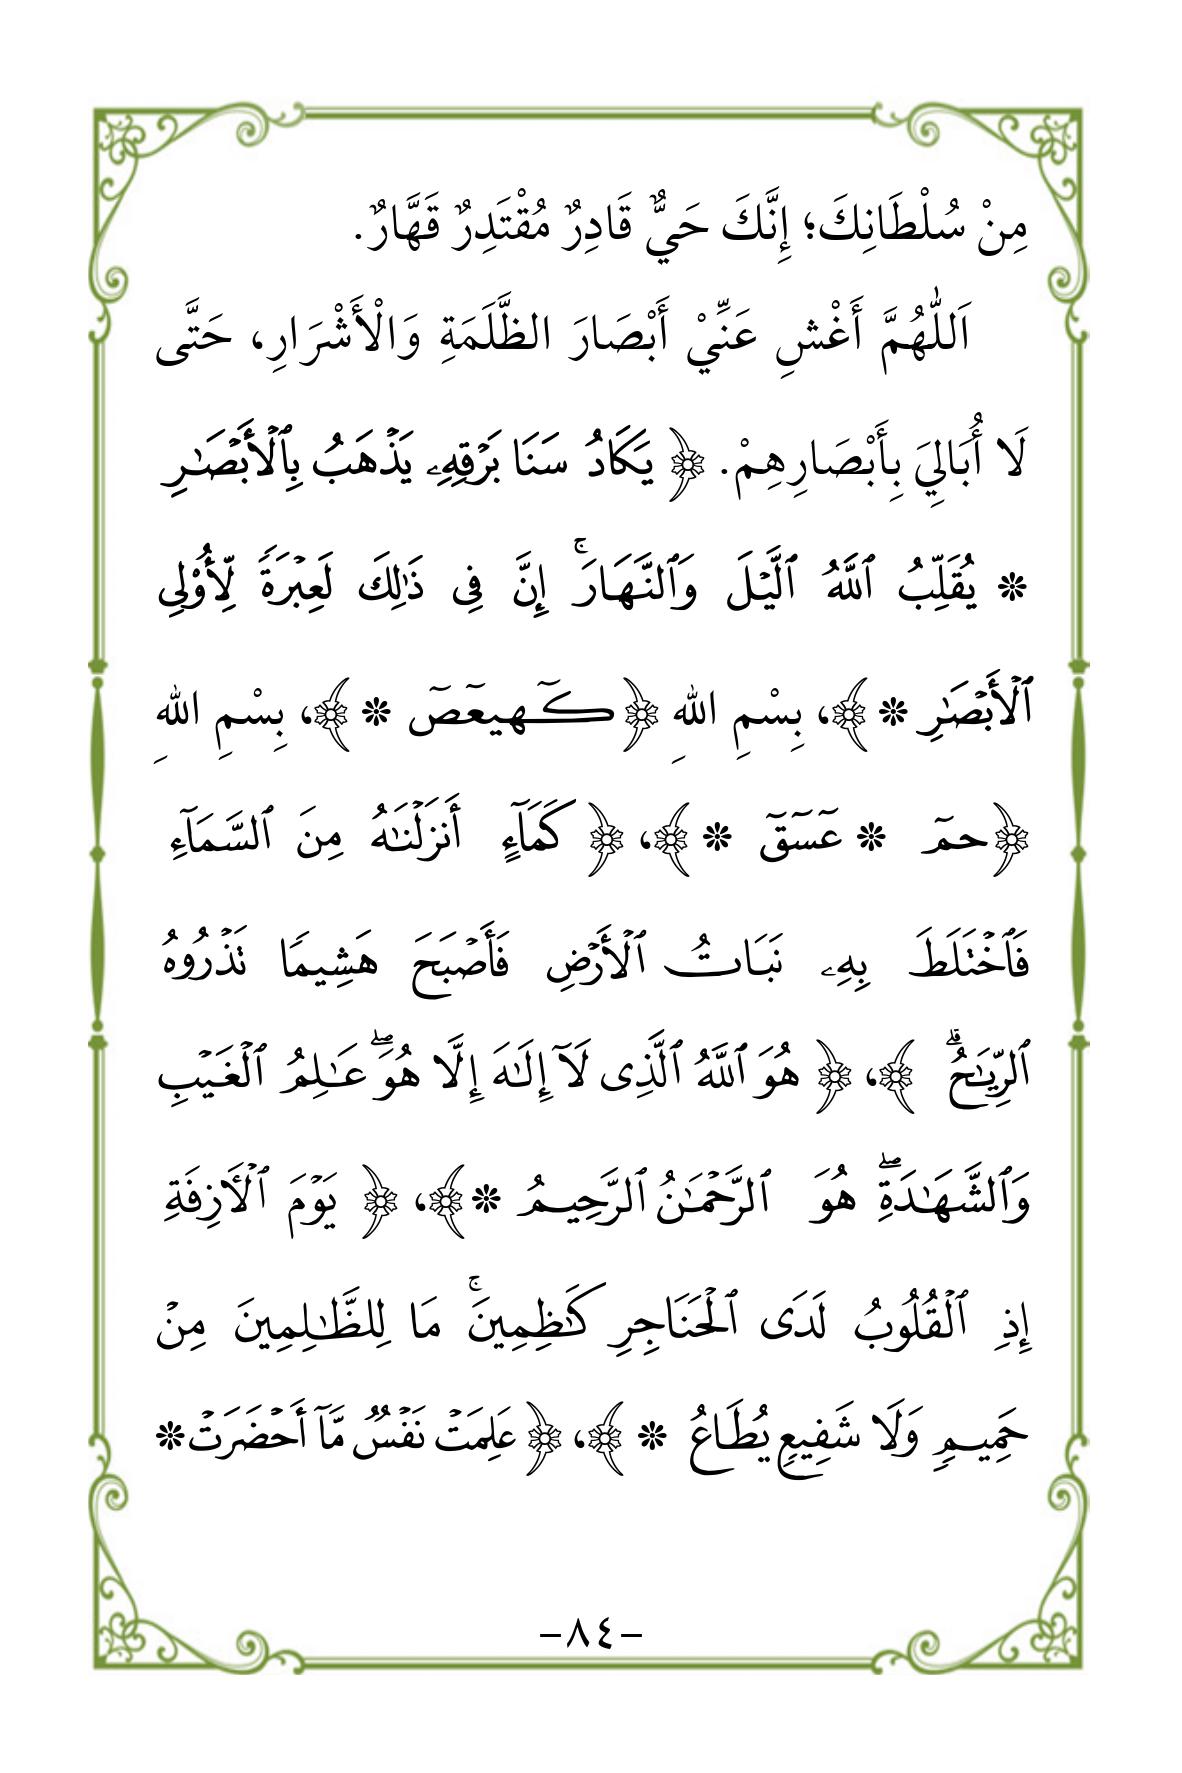 مِنْ سُلْطَانِكَ؛ إِنَّكَ حَيٌّ قَادِرٌ مُقْتَدِرٌ قَهَّارٌ.
اَللّٰهُمَّ أَغْشِ عَنِّيْ أَبْصَارَ الظَّلَمَةِ وَالْأَشْرَارِ، حَتَّى
لَا أُبَالِيَ بِأَبْصَارِهِمْ. ﴿ يَكَادُ سَنَا بَرْقِهِۦ يَذْهَبُ بِٱلْأَبْصَـٰرِ
* يُقَلِّبُ ٱللَّهُ ٱلَّيْلَ وَٱلنَّهَارَ ۚ إِنَّ فِى ذَٰلِكَ لَعِبْرَةً لِّأُو۟لِى
ٱلْأَبْصَـٰرِ * ﴾، بِسْمِ اللهِ ﴿ كٓهيعٓصٓ * ﴾، بِسْمِ اللهِ
﴿ حمٓ * عٓسٓقٓ * ﴾، ﴿ كَمَآءٍ أَنزَلْنَـٰهُ مِنَ ٱلسَّمَآءِ
فَٱخْتَلَطَ بِهِۦ نَبَاتُ ٱلْأَرْضِ فَأَصْبَحَ هَشِيمًا تَذْرُوهُ
ٱلرِّيَـٰحُ ۗ ﴾، ﴿ هُوَ ٱللَّهُ ٱلَّذِى لَآ إِلَـٰهَ إِلَّا هُوَ ۖ عَـٰلِمُ ٱلْغَيْبِ
وَٱلشَّهَـٰدَةِ ۖ هُوَ ٱلرَّحْمَـٰنُ ٱلرَّحِيمُ * ﴾، ﴿ يَوْمَ ٱلْـَٔازِفَةِ
إِذِ ٱلْقُلُوبُ لَدَى ٱلْحَنَاجِرِ كَـٰظِمِينَ ۚ مَا لِلظَّـٰلِمِينَ مِنْ
حَمِيمٍ وَلَا شَفِيعٍ يُطَاعُ * ﴾، ﴿ عَلِمَتْ نَفْسٌ مَّآ أَحْضَرَتْ *
–٨٤–